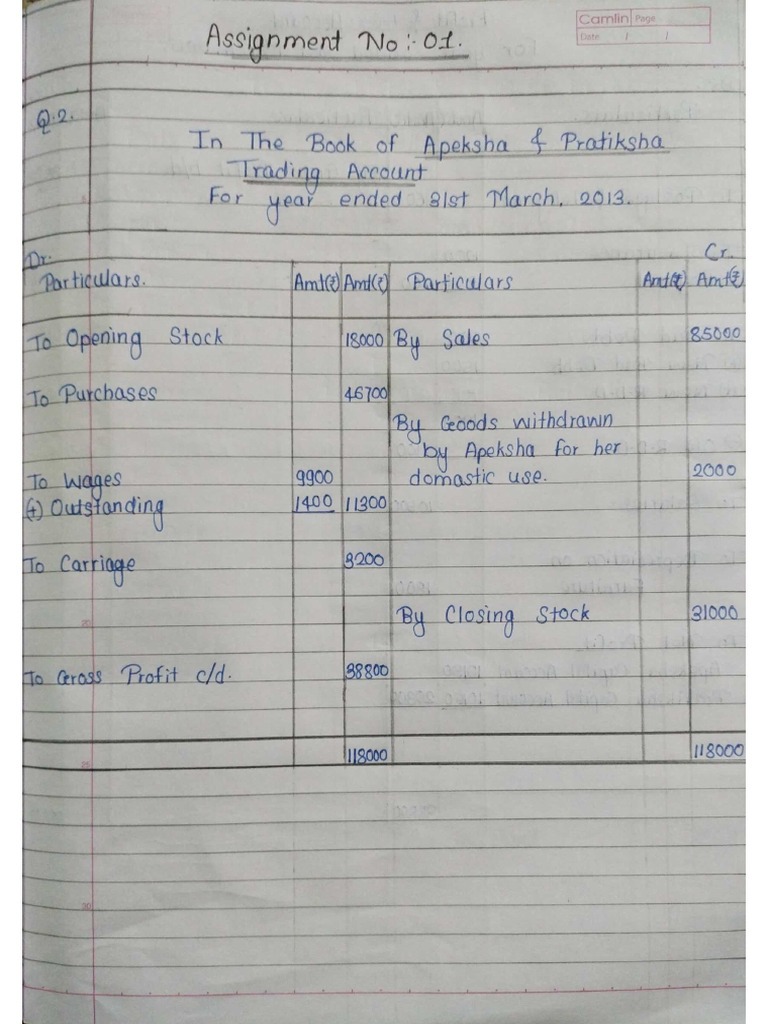 Assignment No:- 01.
Camlin Page
Date / /
Q.2.
In The Book of Apeksha & Pratiksha
Trading Account
For year ended 31st March, 2013.
Dr. Cr.
Particulars. Amt(₹) Amt(₹) Particulars Amt(₹) Amt(₹)
To Opening Stock 18000 By Sales 85000
To Purchases 46700
By Goods withdrawn
by Apeksha for her
To Wages 9900 domastic use. 2000
(+) Outstanding 1400 11300
To Carriage 3200
By Closing Stock 31000
To Gross Profit c/d. 38800
118000 118000